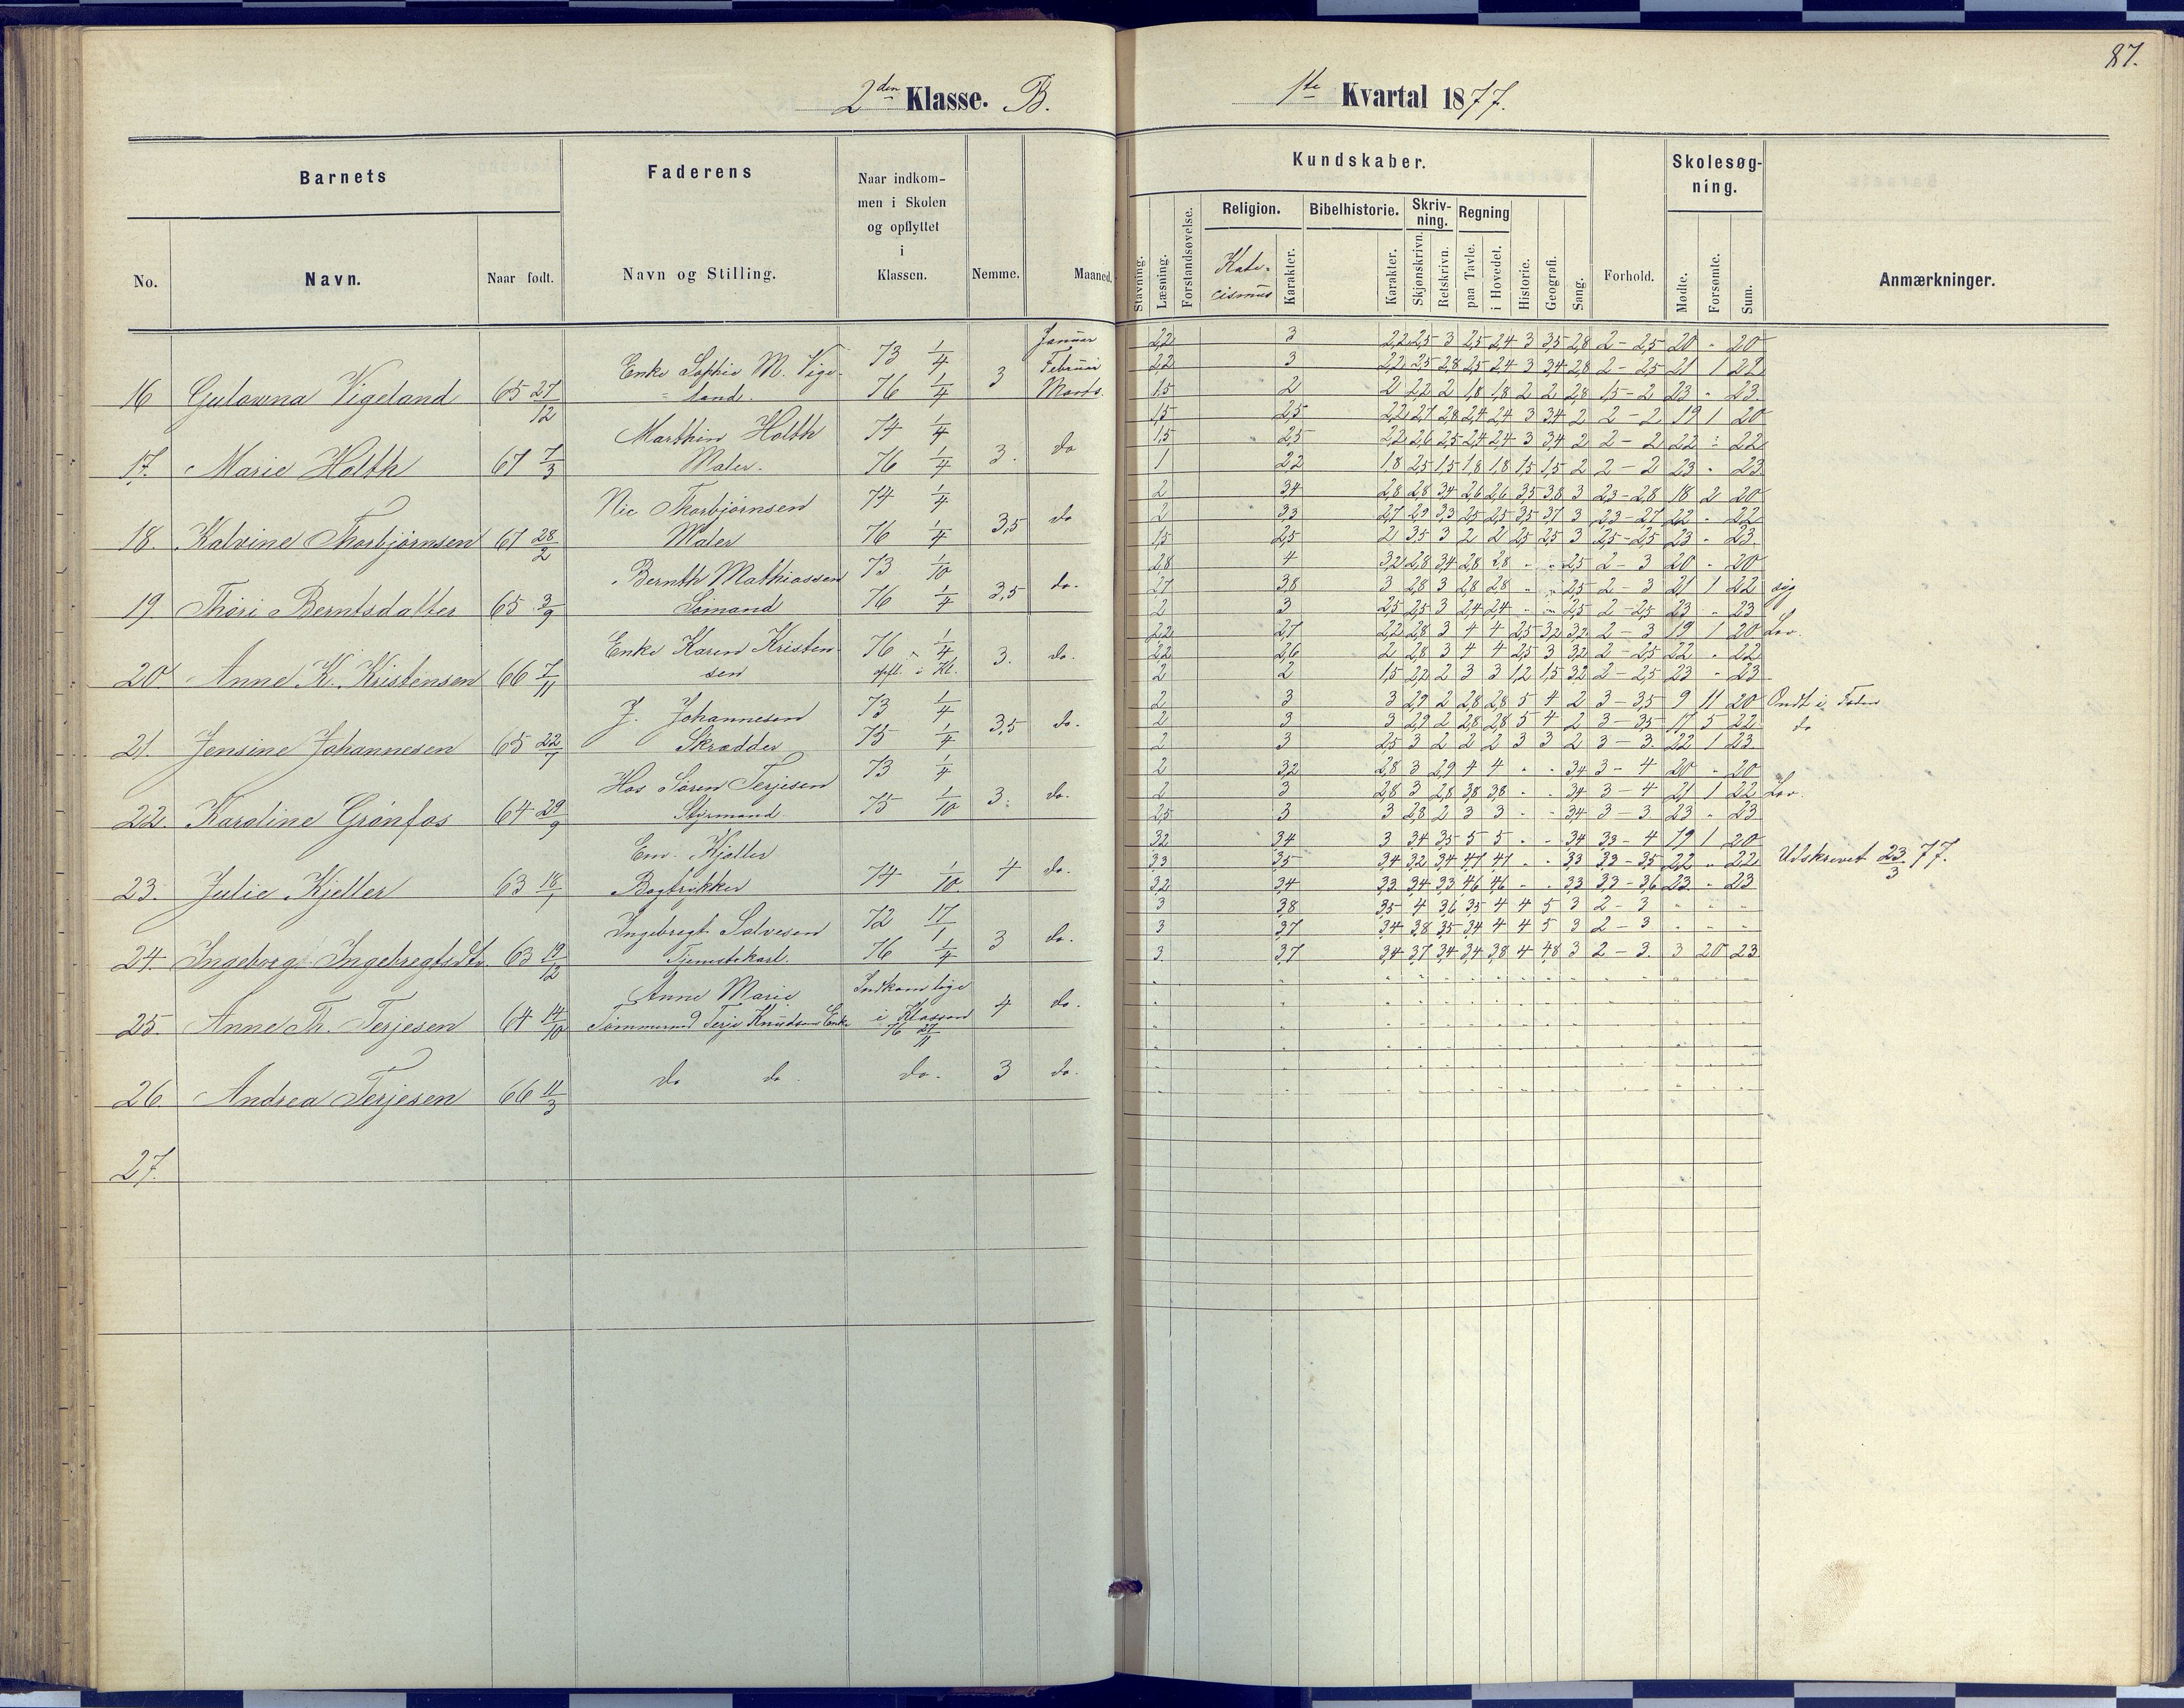 87.
2den Klasse. B.
1ste Kvartal 1877.
Barnets
Faderens
Naar indkom-
men i Skolen
og opflyttet
i
Klassen.
No.
Navn.
Naar født.
Navn og Stilling.
Nemme.
Maaned.
Kundskaber.
Skolesøg-
ning.
Religion.
Bibelhistorie.
Skriv-
ning.
Regning
Stavning.
Læsning.
Forstandsøvelse.
Kate-
cismus
Karakter.
Karakter.
Skjønskrivn.
Retskrivn.
paa Tavle.
i Hovedet.
Historie.
Geografi.
Sang.
Forhold.
Mødte.
Forsømte.
Sum.
Anmærkninger.
Enke Sophie M. Vige- 73 1/4 Januar
Februar
16 Gulowna Vigeland 65 27/12 land. 76 1/4 3 Marts.
Marthin Holth 74 1/4
17. Marie Holth 67 7/3 Maler. 76 1/4 3. do
Nic Thorbjørnsen 74 1/4
18. Kalvine Thorbjørnsen 67 28/2 Maler 76 1/4 3,5 do
Bernth Mathiassen 73 1/10
19. Thori Berntsdatter 65 3/9 Sømand 76 1/4 3,5 do.
Enke Karen Kristen 76 1/4
20. Anne K. Kristensen 66 7/11 sen opfl. i Kl. 3. do.
J. Johannesen 73 1/4
21. Jensine Johannesen 65 22/7 Skrædder 75 1/4 3,5 do.
Hos Søren Terjesen 73 1/4
22. Karoline Grønfos 64 29/9 Styrmand 75 1/10 3. do.
Em. Kjeller
23. Julie Kjeller 63 18/1 Bogtrykker 74 1/10 4 do.
Ingebregt Salvesen 72 17/1
24. Ingeborg Ingebregtsdtr. 63 19/12 Tjenestekarl. 76 1/4 3 do.
Anne Marie Indkom lige
25. Anne Th. Terjesen 64 14/10 Tømmermd Terje Knudsens Enke i Klassen 76 27/11 4 do.
26. Andrea Terjesen 66 11/3 do do do. 3 do.
27.
2,2 3 2,2 2,5 3 2,5 2,4 3 3,5 2,8 2-2,5 20 " 20
2,2 3 2,2 2,5 2,8 2,5 2,4 3 3,4 2,8 2-2,5 21 1 22
1,5 2 2 2,2 2 1,8 1,8 2 2 2,8 1,5-2 23 " 23
1,5 2,5 2,2 2,7 2,8 2,4 2,4 3 3,4 2 2-2 19 1 20
1,5 2,5 2,2 2,6 2,5 2,4 2,4 3 3,4 2 2-2 22 " 22
1 2,2 1,8 2,5 1,5 1,8 1,8 1,5 1,5 2 2-2 23 " 23
2 3,4 2,8 2,8 3,4 2,6 2,6 3,5 3,8 3 2,3-2,8 18 2 20
2 3,3 2,7 2,9 3,3 2,5 2,5 3,5 3,7 3 2,3-2,7 22 " 22
1,5 2,5 2 3,5 3 2 2 2,5 2,5 3 2,5-2,5 23 " 23
2,8 4 3,2 2,8 3,4 2,8 2,8 " " 2,5 2-3 20 " 20
2,7 3,8 3 2,8 3 2,8 2,8 " " 2,5 2-3 21 1 22 syg
2 3 2,5 2,5 3 2,4 2,4 " " 2,5 2-2,5 23 " 23
2,2 2,7 2,2 2,8 3 4 4 2,5 3,2 3,2 2-3 19 1 20 Lov.
2,2 2,6 2 2,8 3 4 4 2,5 3 3,2 2-2,5 22 " 22
2 2 1,5 2,2 2 3 3 1,2 1,5 3,2 2-2,5 23 " 23
2 3 3 2,9 2 2,8 2,8 5 4 2 3-3,5 9 11 20 Ondt i Foden
2 3 3 2,9 2 2,8 2,8 5 4 2 3-3,5 17 5 22 do
2 3 2,5 3 2 2 2 3 3 2 3-3 22 1 23
2 3,2 2,8 3 2,9 4 4 " " 3,4 3-4 20 " 20
2 3 2,8 3 2,8 3,8 3,8 " " 3,4 3-4 21 1 22 Lov.
2,5 3 3 2,8 2 3 3 " " 3,4 3-3 23 " 23
3,2 3,4 3 3,4 3,5 5 5 " " 3,4 3,3-4 19 1 20
3,3 3,5 3,4 3,2 3,4 4,7 4,7 " " 3,3 3,3-3,5 22 " 22 Udskrevet 23/3 77.
3,2 3,4 3,3 3,4 3,3 4,6 4,6 " " 3,3 3,3-3,6 23 " 23
3 3,8 3,5 4 3,6 3,5 4 4 5 3 2-3 " " "
3 3,7 3,4 3,8 3,5 3,4 4 4 5 3 2-3 " " "
3 3,7 3,4 3,7 3,4 3,4 3,8 4 4,8 3 2-3 3 20 23